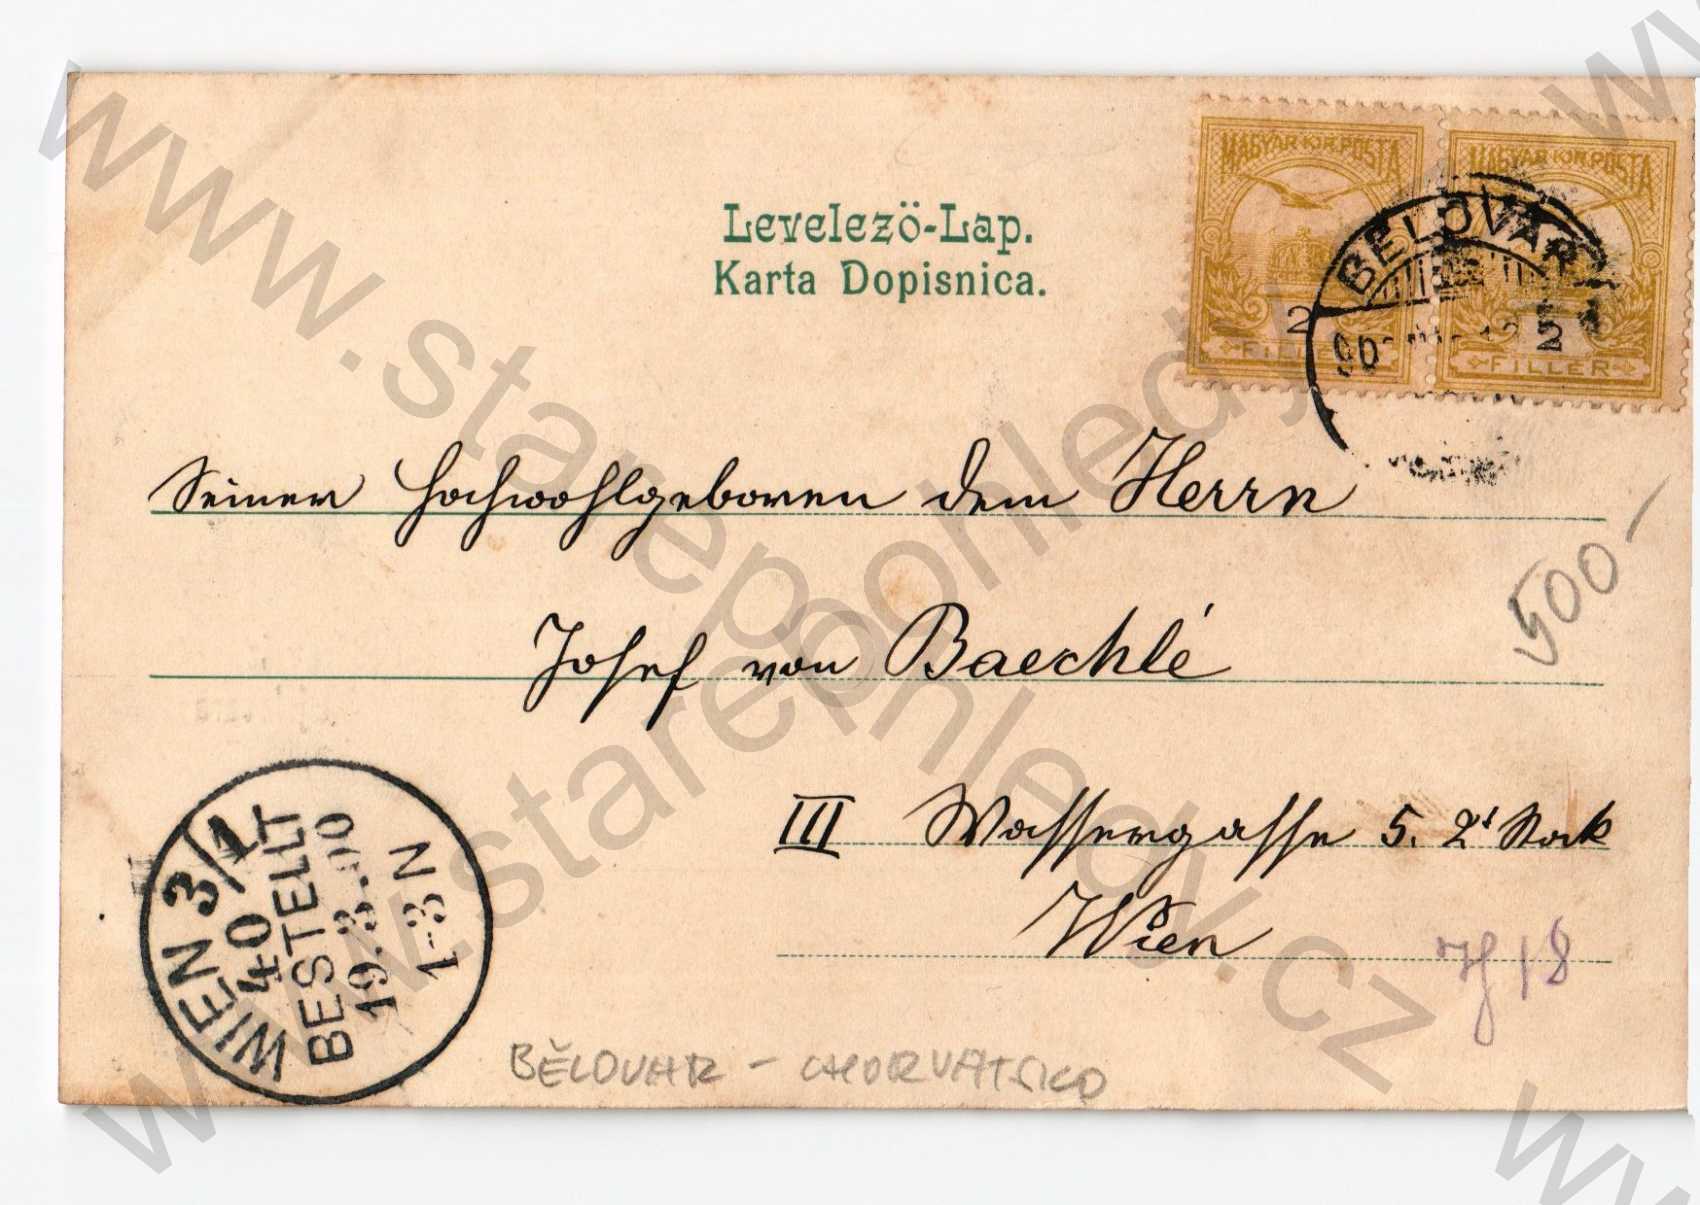 MAGYAR KIR. POSTA
MAGYAR KIR. POSTA
2
FILLER
2
FILLER
BELOVÁR
Levelezö-Lap.
Karta Dopisnica.
Seiner Hochwohlgeboren dem Herrn
500-
Josef von Baechlé
III Wassergasse 5. 2t Stock
Wien
WIEN 3/1
40
BESTELLT
19.3.00
1-3N
BĚLOVAR - CHORVATSKO
www.starepohledy.cz
www.starepohledy.cz